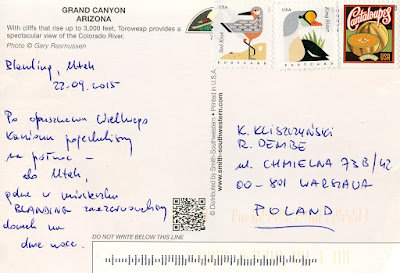 GRAND CANYON
ARIZONA
With cliffs that rise up to 3,000 feet, Toroweap provides a
spectacular view of the Colorado River.
Photo © Gary Rasmussen
Blanding, Utah
22.09.2015
Po opuszczeniu Wielkiego
Kanionu pojechaliśmy
na północ –
do Utah,
gdzie w miasteczku
BLANDING
na
dwie noce.
DO NOT WRITE BELOW THIS LINE
© Distributed by Smith-Southwestern • Printed in U.S.A.
www.smith-southwestern.com
Red Knot
USA
POSTCARD
King Eider
USA
POSTCARD
Cantaloupes
USA
K. KLISZCZYŃSKI
R. DEMBE
ul. CHMIELNA 73B/42
00-801 WARSZAWA
POLAND